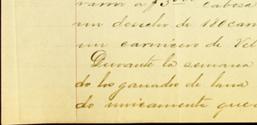 varon a $ 5000 cabeza
un desecho de 110 can
un carnicero de Vel
Durante la semana
do los ganados de lana
do unicamente que